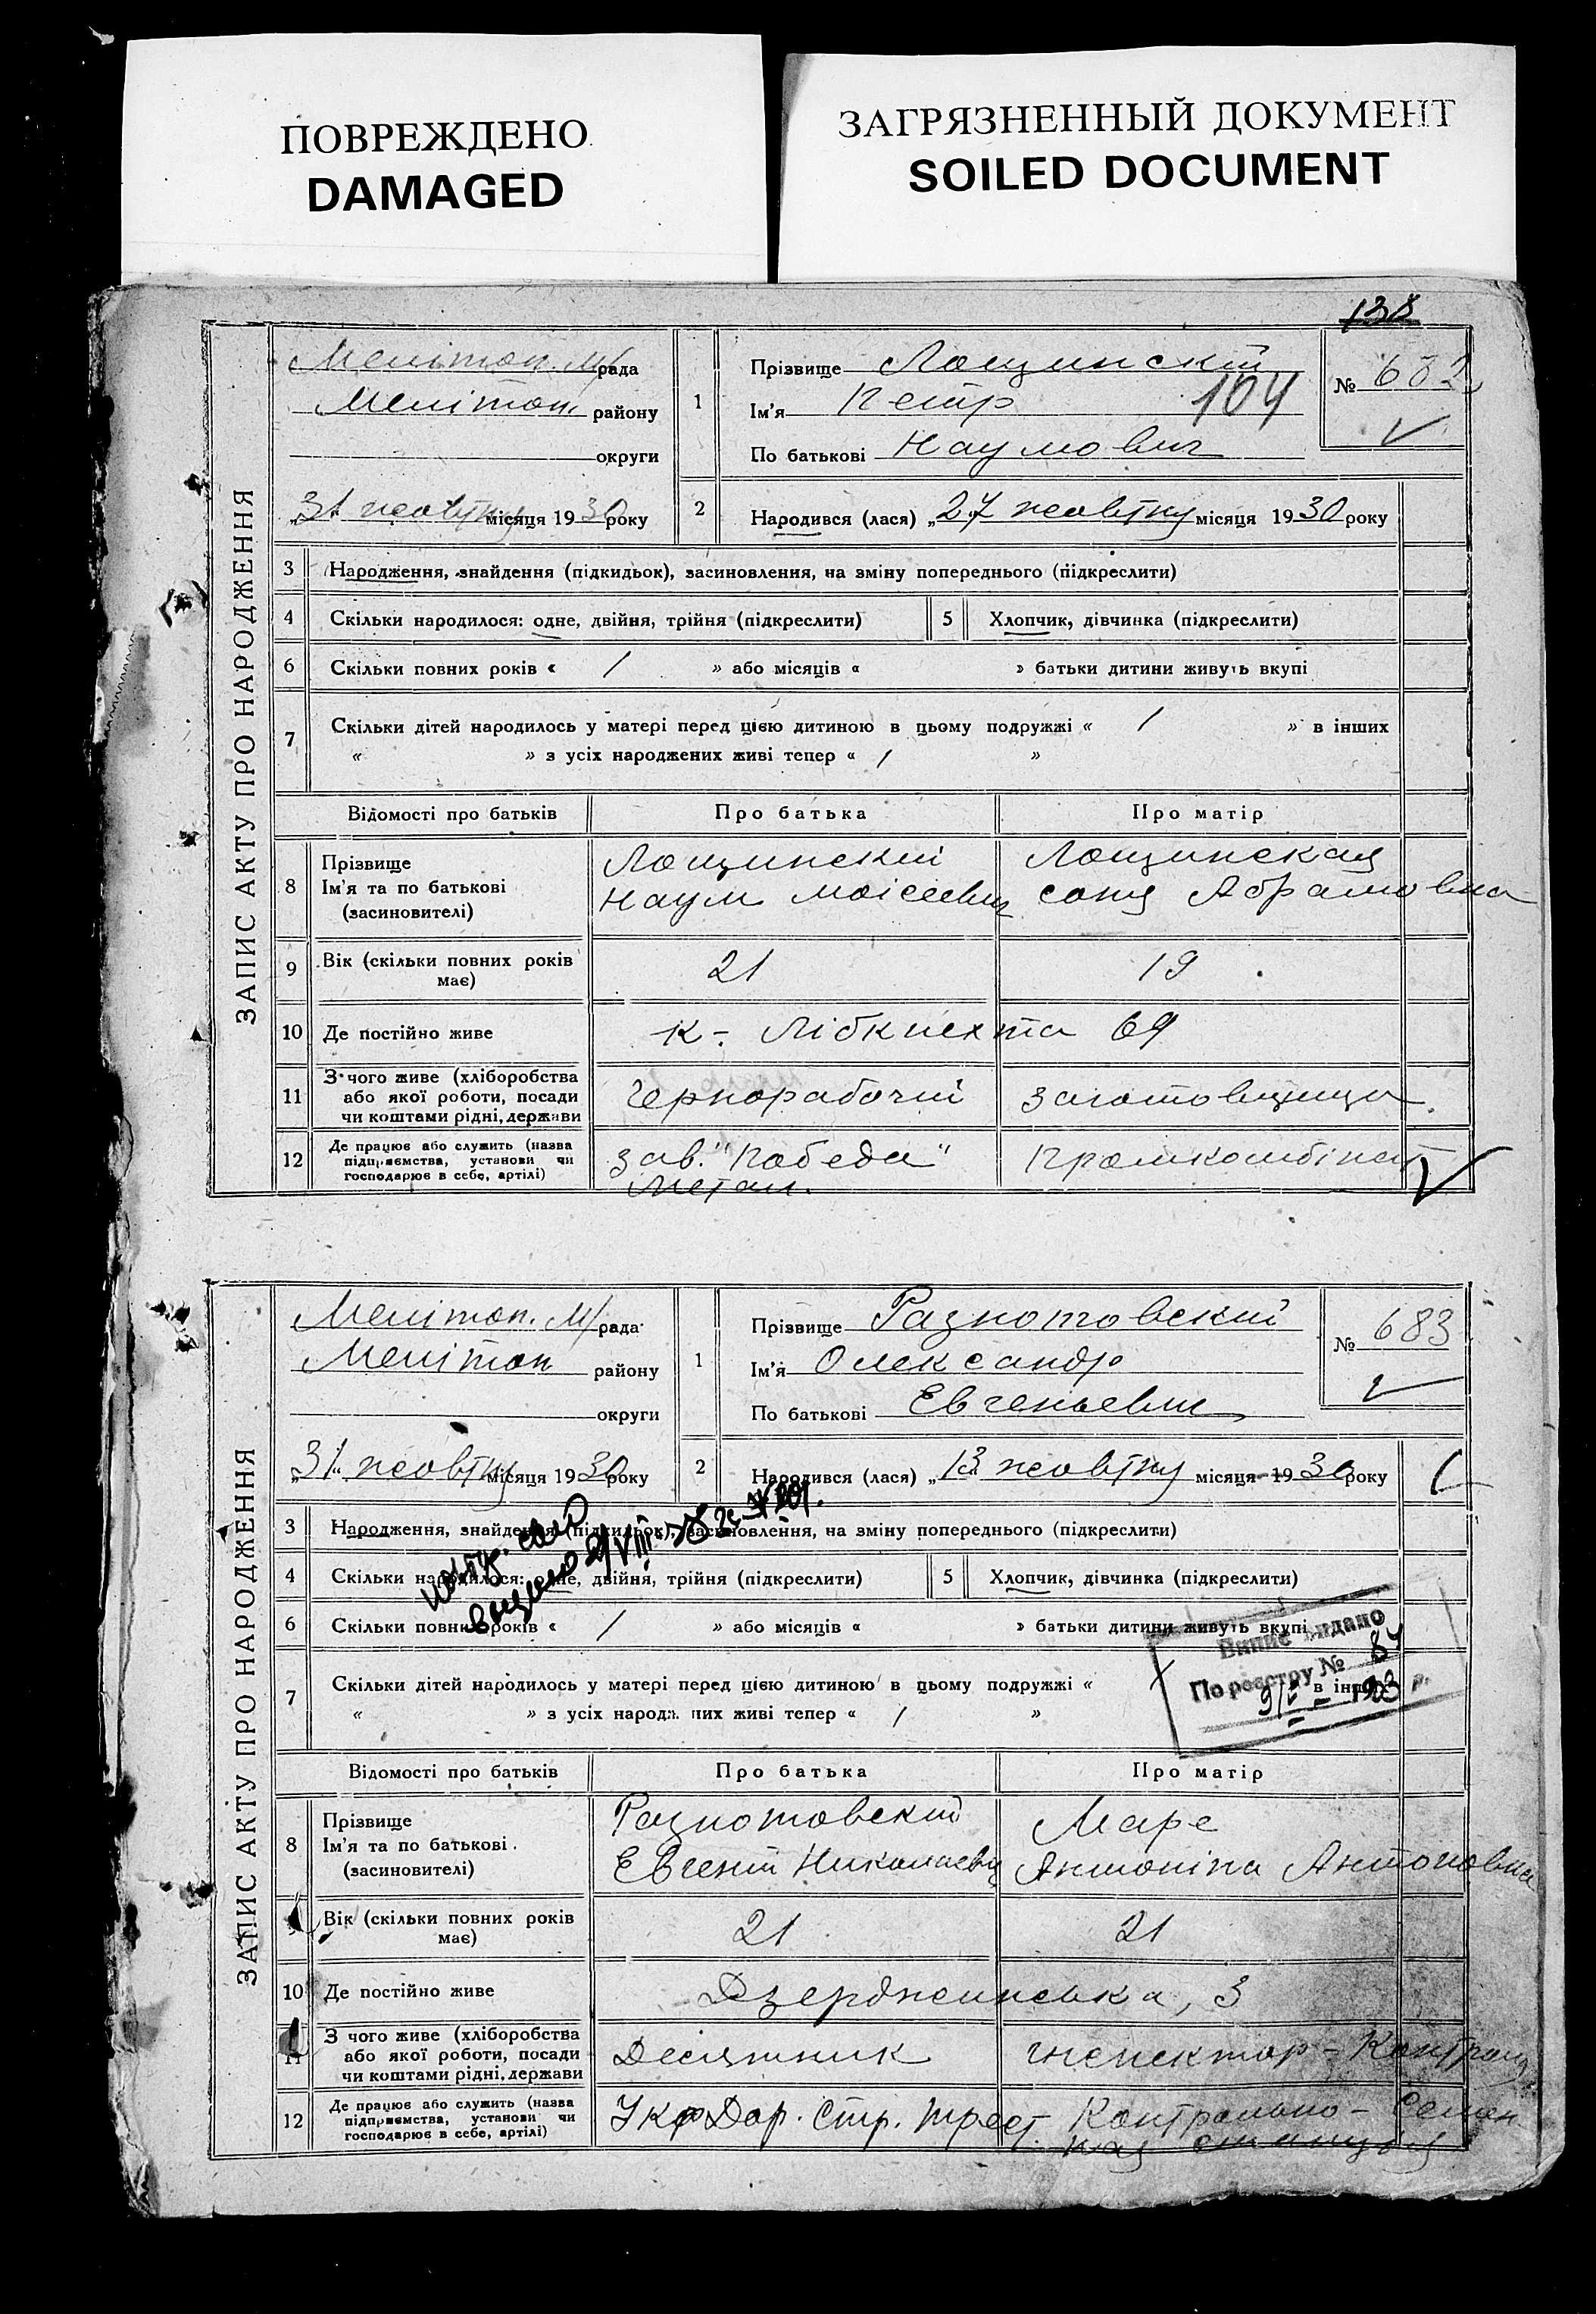 ПОВРЕЖДЕНО
DAMAGED
ЗАГРЯЗНЕННЫЙ ДОКУМЕНТ
SOILED DOCUMENT
138
ЗАПИС АКТУ ПРО НАРОДЖЕННЯ
Мелітоп. М/рада
Мелітоп. району
округи
„31" жовтня місяця 1930 року
1
Прізвище Лощинский
Ім'я Петр 104
По батькові Наумович
№ 682
2 Народився (лася) „27 жовтня місяця 1930 року
3 Народження, знайдення (підкидьок), засиновлення, на зміну попереднього (підкреслити)
4 Скільки народилося: одне, двійня, трійня (підкреслити) 5 Хлопчик, дівчинка (підкреслити)
6 Скільки повних років « 1 » або місяців « » батьки дитини живуть вкупі
7 Скільки дітей народилось у матері перед цією дитиною в цьому подружжі « / » в інших
« » з усіх народжених живі тепер « 1 »
Відомості про батьків Про батька Про матір
8 Прізвище Лощинский Лощинская
Ім'я та по батькові Наум Моісеевич соня Абрамовна
(засиновителі)
9 Вік (скільки повних років має) 21 19
10 Де постійно живе К-. Лібкнехта 69
11 З чого живе (хліборобства або якої роботи, посади чи коштами рідні, держави Чернорабочий заготовщица
12 Де працює або служить (назва підприємства, установи чи господарює в себе, артілі) зав. "Победа" Промкомбінат
Метал.
ЗАПИС АКТУ ПРО НАРОДЖЕННЯ
Мелітоп. М/рада
Мелітоп району
округи
„31" жовтня місяця 1930 року
1
Прізвище Разнотовский
Ім'я Олександр
По батькові Евгеньевич
№ 683
2 Народився (лася) „13 жовтня місяця 1930 року
3 Народження, знайдення (підкидьок), засиновлення, на зміну попереднього (підкреслити)
4 Скільки народилося: одне, двійня, трійня (підкреслити) 5 Хлопчик, дівчинка (підкреслити)
6 Скільки повних років « 1 » або місяців « » батьки дитини живуть вкупі
Випис видано
По реєстру №
7 Скільки дітей народилось у матері перед цією дитиною в цьому подружжі « / » в інших
« » з усіх народжених живі тепер « 1 »
Відомості про батьків Про батька Про матір
8 Прізвище Разнотовский Маре
Ім'я та по батькові Евгений Николаевич Антоніна Антоновна
(засиновителі)
9 Вік (скільки повних років має) 21 21
10 Де постійно живе Дзержинська, 3
11 З чого живе (хліборобства або якої роботи, посади чи коштами рідні, держави Десятник
12 Де працює або служить (назва підприємства, установи чи господарює в себе, артілі) УкрДор. Стр. трест Контрольно - Семен
ная станция